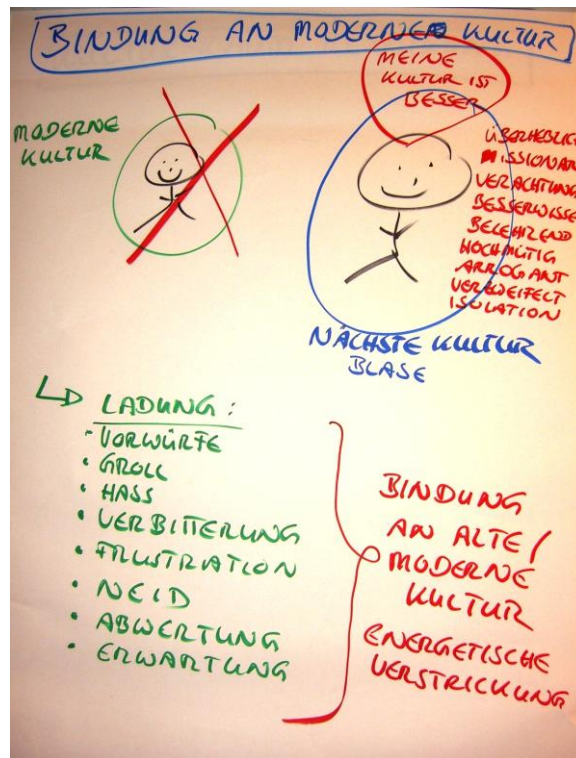 BINDUNG AN MODERNE KULTUR
MEINE
KULTUR IST
BESSER
MODERNE
KULTUR
ÜBERHEBLICH
MISSIONAR
VERACHTUNG
BESSERWISSE
BELEHREND
HOCHMÜTIG
ARROGANT
VERZWEIFELT
ISOLATION
NÄCHSTE KULTUR
BLASE
LADUNG:
- VORWÜRFE
• GROLL
• HASS
• VERBITTERUNG
• FRUSTRATION
• NEID
• ABWERTUNG
• ERWARTUNG
BINDUNG
AN ALTE/
MODERNE
KULTUR
ENERGETISCHE
VERSTRICKUNG